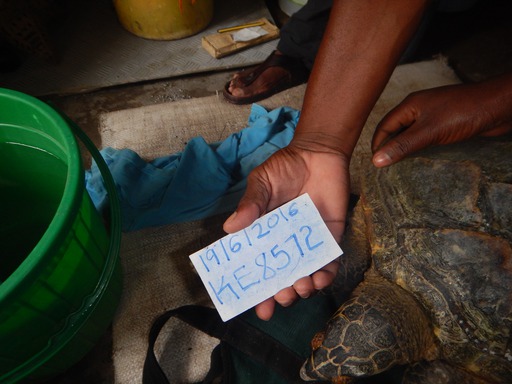 19/6/2016
KE8572